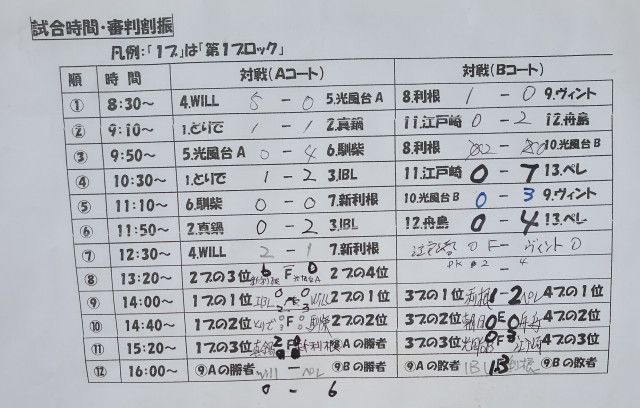 試合時間・審判割振
凡例:「1ブ」は「第1ブロック」
順 時間 対戦(Aコート) 対戦(Bコート)
① 8:30～ 4.WILL 5 - 0 5.光風台A 8.利根 1 - 0 9.ヴィント
② 9:10～ 1.とりで 1 - 1 2.真鍋 11.江戸崎 0 - 2 12.舟島
③ 9:50～ 5.光風台A 0 - 4 6.馴柴 8.利根 - 10.光風台B
④ 10:30～ 1.とりで 1 - 2 3.IBL 11.江戸崎 0 - 7 13.ペレ
⑤ 11:10～ 6.馴柴 0 - 0 7.新利根 10.光風台B 0 - 3 9.ヴィント
⑥ 11:50～ 2.真鍋 0 - 2 3.IBL 12.舟島 0 - 4 13.ペレ
⑦ 12:30～ 4.WILL 2 - 1 7.新利根 江戸崎 0 F - ヴィント 0
PK 2 - 4
⑧ 13:20～ 2ブの3位 新利根 6 F 0 光風台A 2ブの4位
⑨ 14:00～ 1ブの1位 IBL WILL 2ブの1位 3ブの1位 利根 1-2 ペレ 4ブの1位
⑩ 14:40～ 1ブの2位 とりで F 馴柴 2ブの2位 3ブの2位 0 0 4ブの2位
⑪ 15:20～ 1ブの3位 真鍋 2 F 新利根 ⑧Aの勝者 3ブの3位 光風台B 0 F 江戸崎 4ブの3位
⑫ 16:00～ ⑨Aの勝者 WILL - ペレ ⑨Bの勝者 ⑨Aの敗者 IBL 利根 ⑨Bの敗者
0 - 6